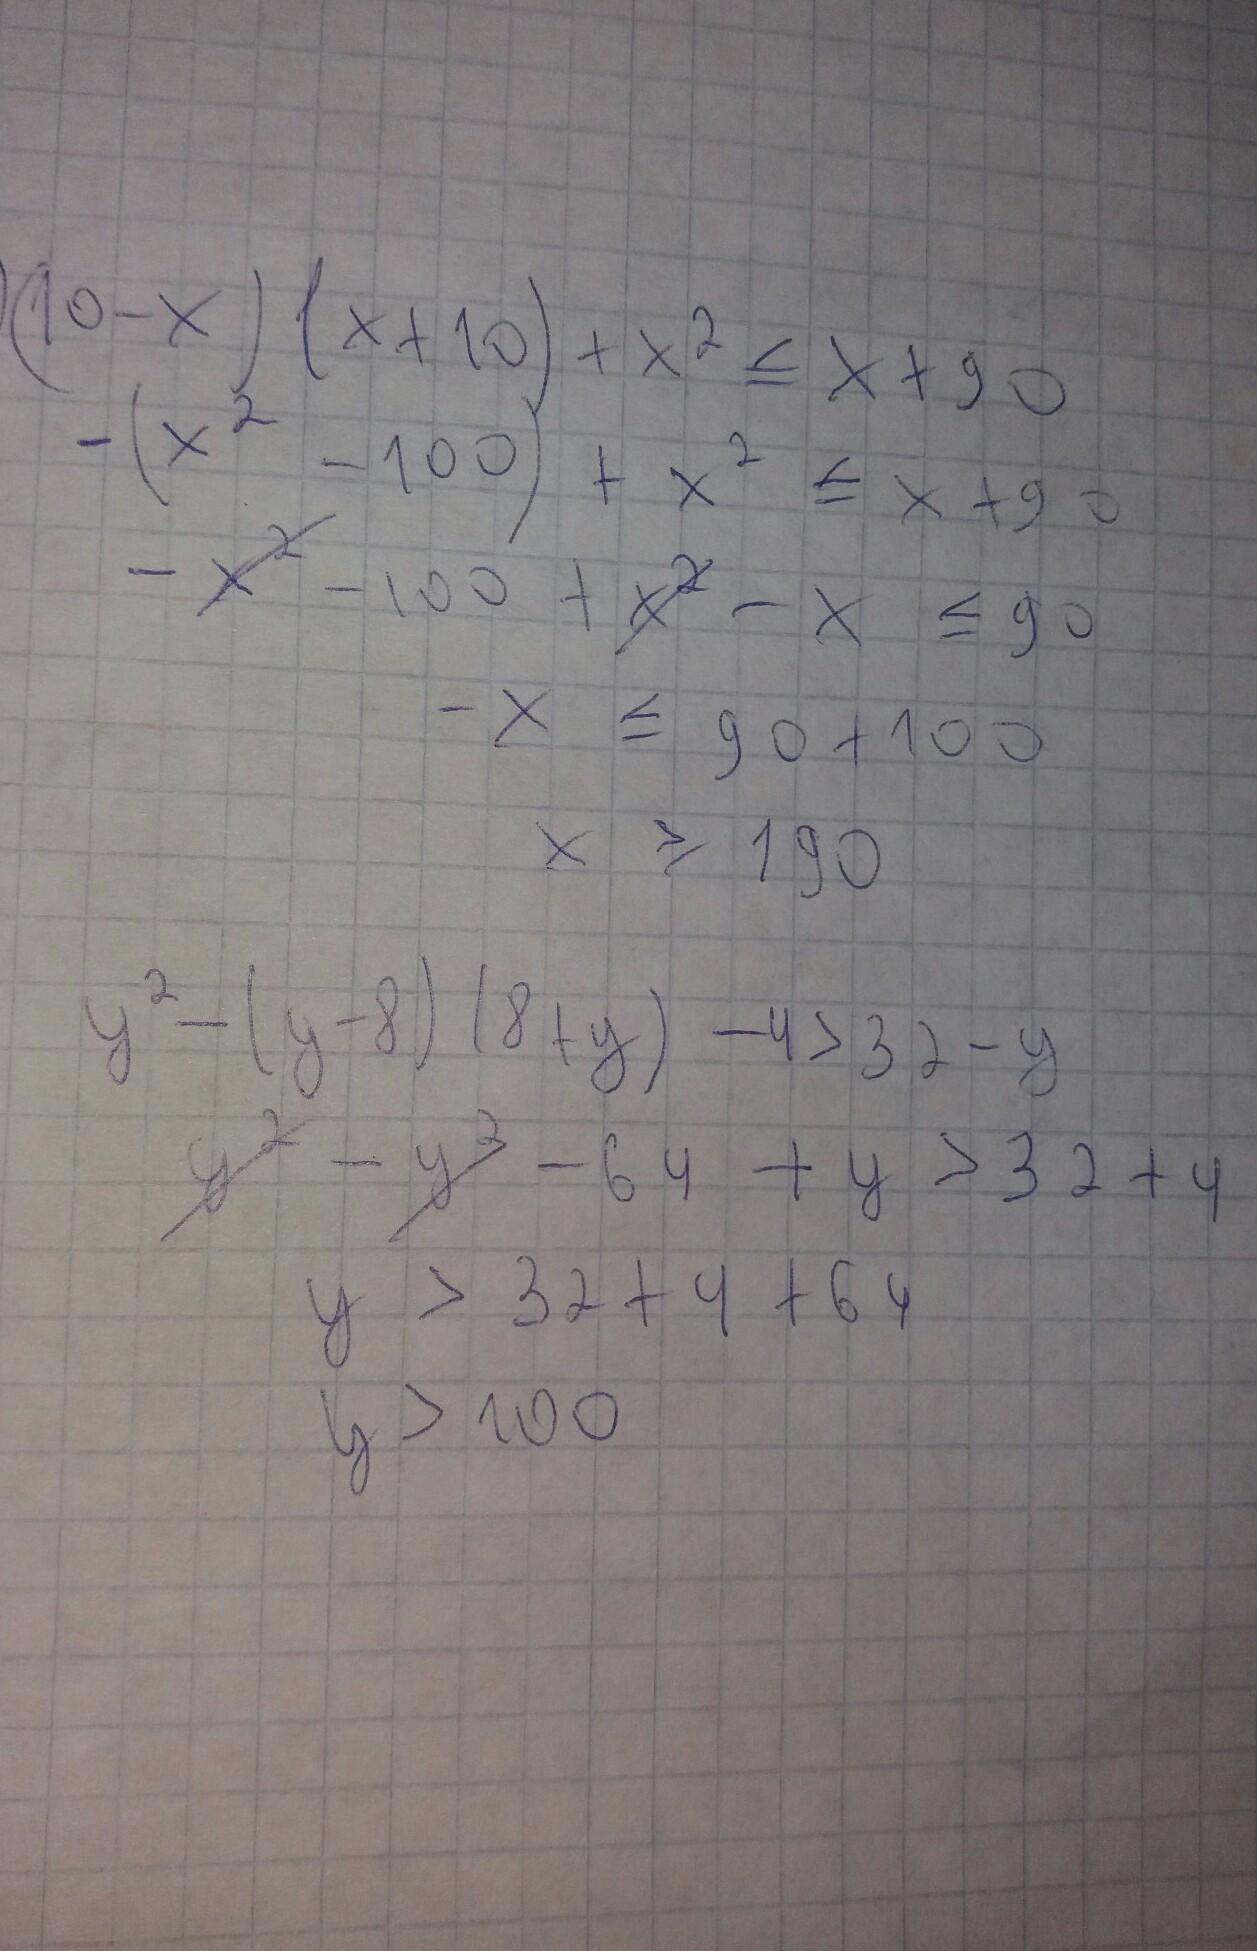 (10-x)(x+10)+x² ≤ x+90
-(x²-100)+x² ≤ x+90
-x²-100+x²-x ≤ 90
-x ≤ 90+100
x ≥ 190
y²-(y-8)(8+y)-4>32-y
y²-y²-64+y>32+4
y>32+4+64
y>100